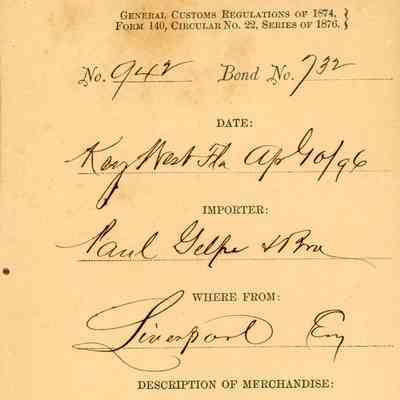 GENERAL CUSTOMS REGULATIONS OF 1874, }
FORM 140, CIRCULAR NO. 22, SERIES OF 1876. }
No. 942 Bond No. 732
DATE:
Key West Fla Apl 10/96
IMPORTER:
Paul Gelpi & Bro
WHERE FROM:
Liverpool Eng
DESCRIPTION OF MERCHANDISE: